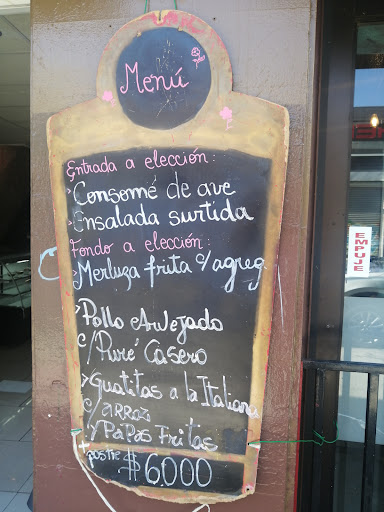 Menú
Entrada a elección:
Consomé de ave
Ensalada surtida
Fondo a elección:
Merluza frita c/agreg
Pollo Arvejado
c/Puré Casero
Guatitas a la Italiana
c/arroz
y Papas Fritas
+ postre $6.000
EMPUJE